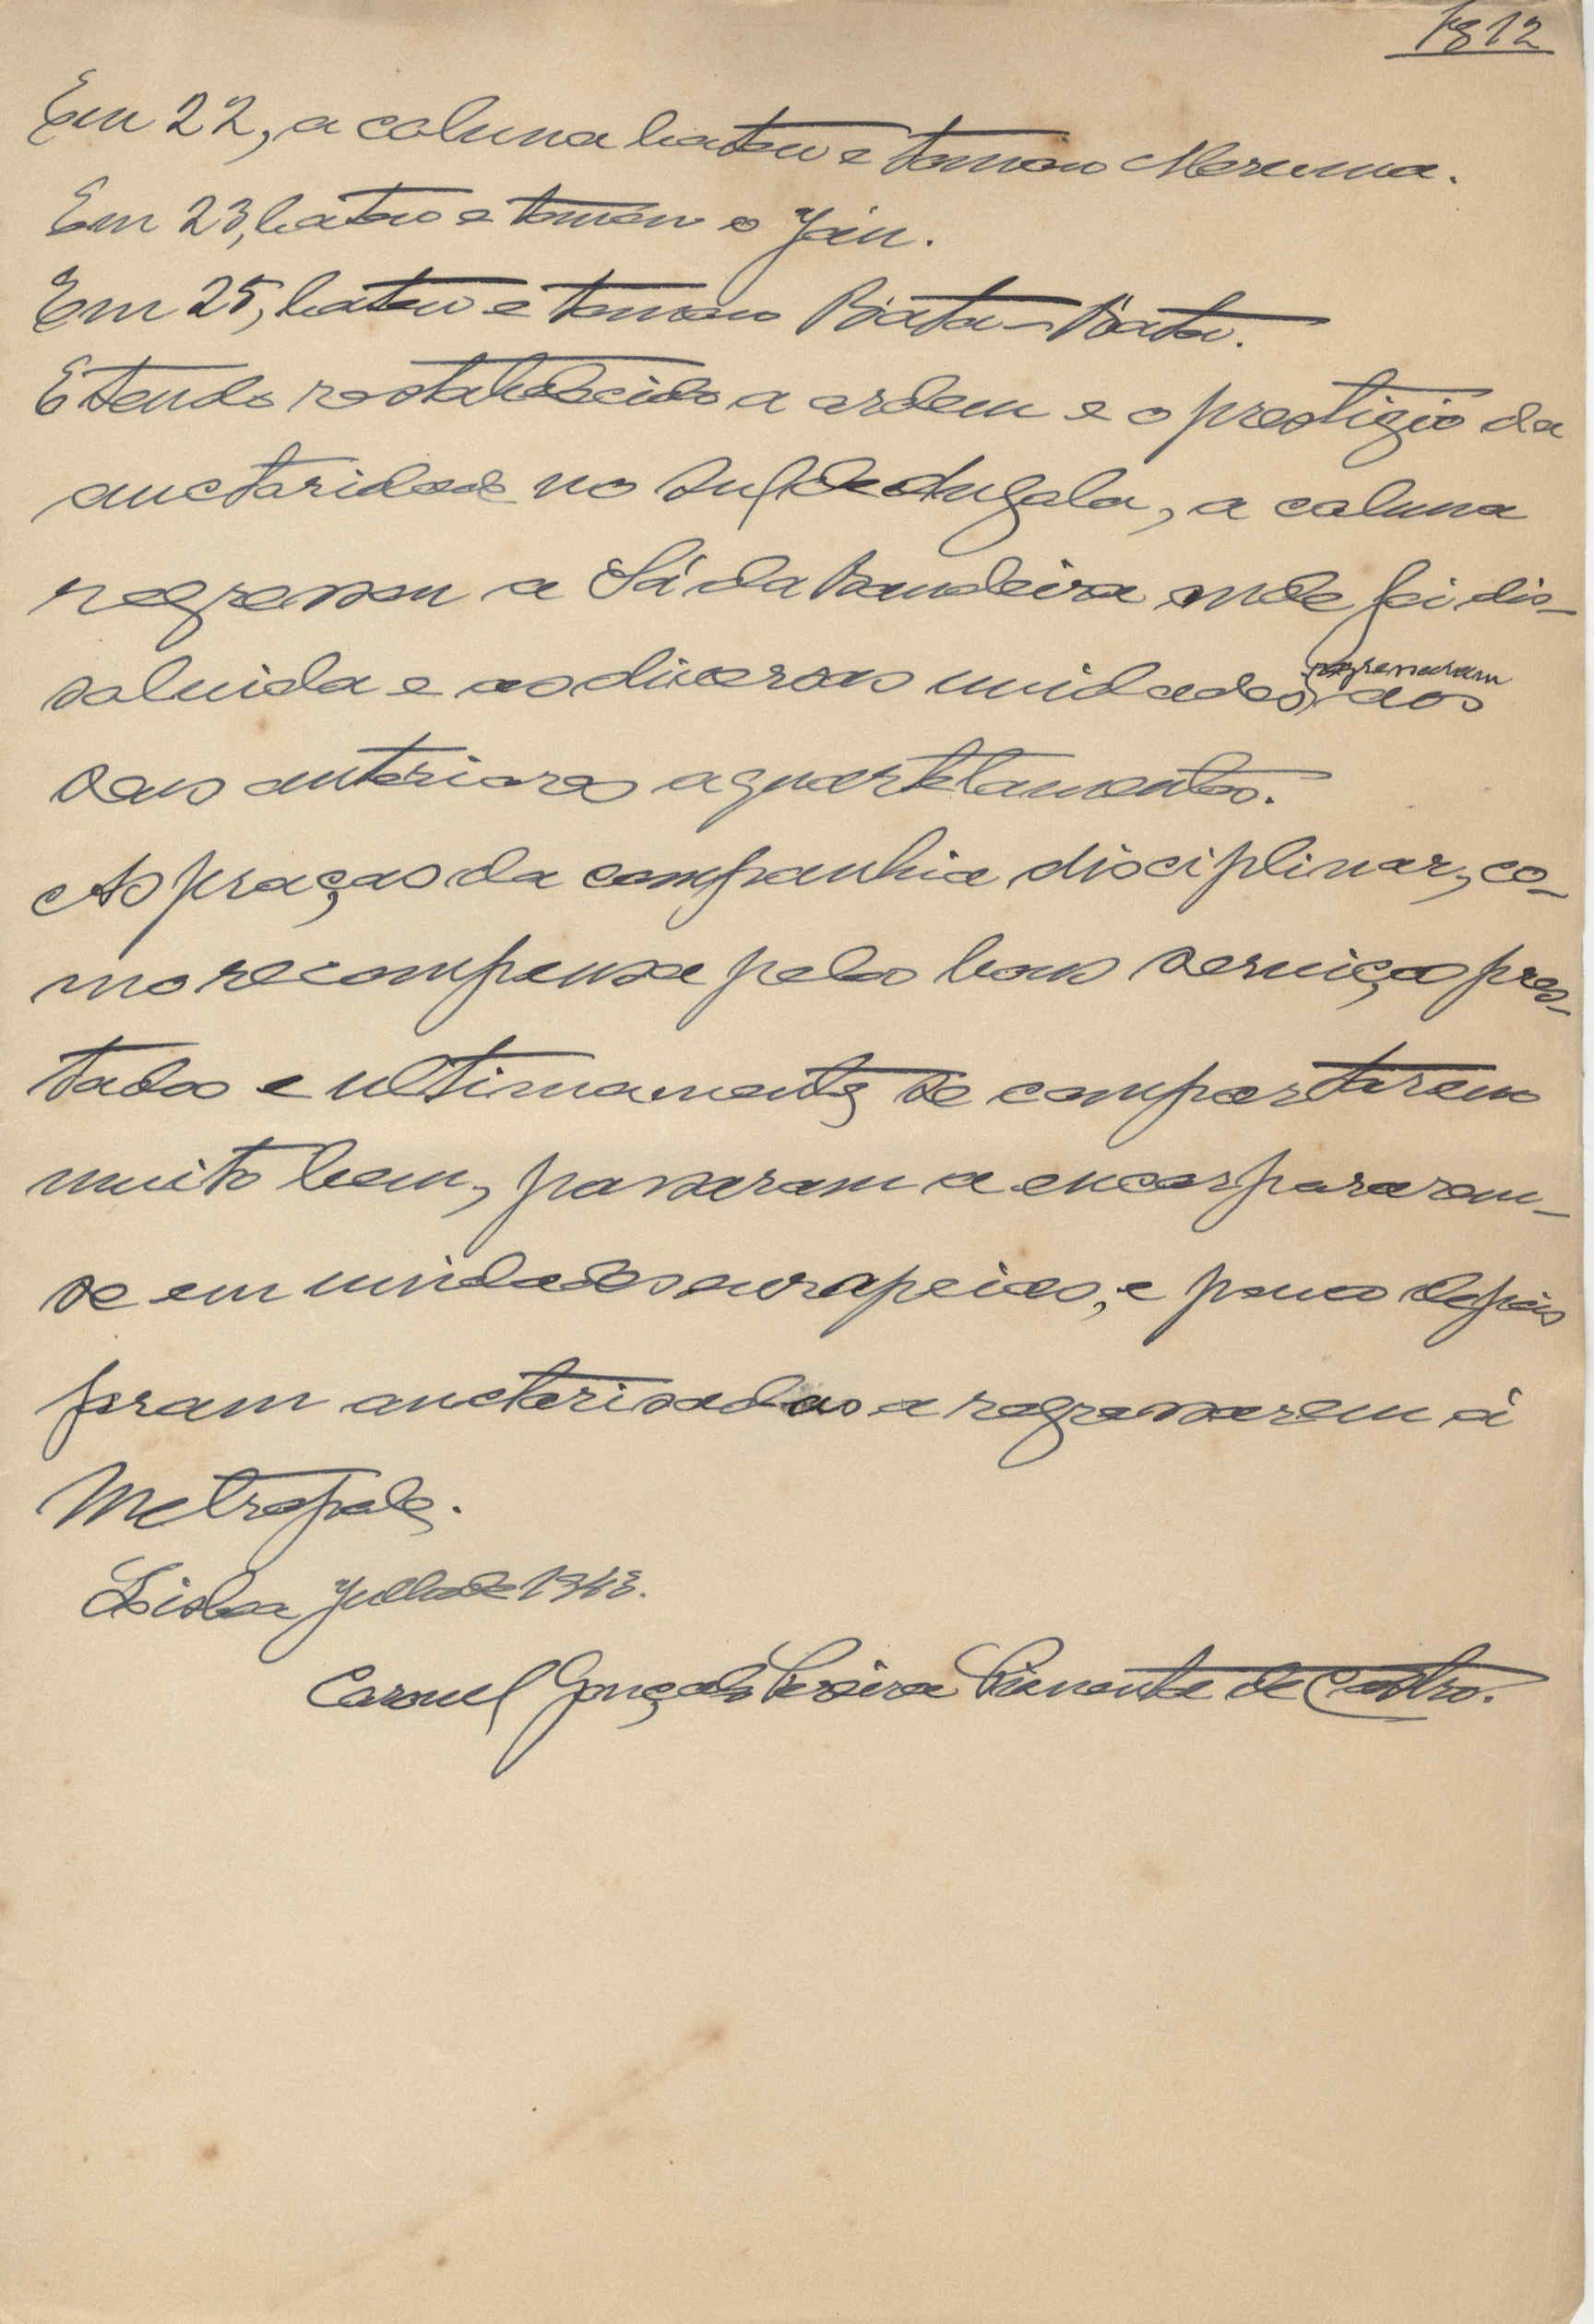 Pg 12
Em 22, a coluna bateu e tomou Meruma.
Em 23, bateu e tomou o Jáu.
Em 25, bateu e tomou Bata-Bata.
E tendo restabelecido a ordem e o prestigio da
auctoridade no Sul de Angola, a coluna
regressou a Sá da Bandeira onde foi dis-
solvida e as diversas unidades regressaram aos
seus anteriores aquartelamentos.
As praças da companhia disciplinar, co-
mo recompensa pelos bons serviços pres-
tados e ultimamente se comportarem
muito bem, passaram a encorporarem-
se em unidades europeias, e pouco depois
foram auctorisadas a regressarem á
Metropole.
Lisboa Julho de 1943.
Coronel Gonçalo Pereira Pimenta de Castro.